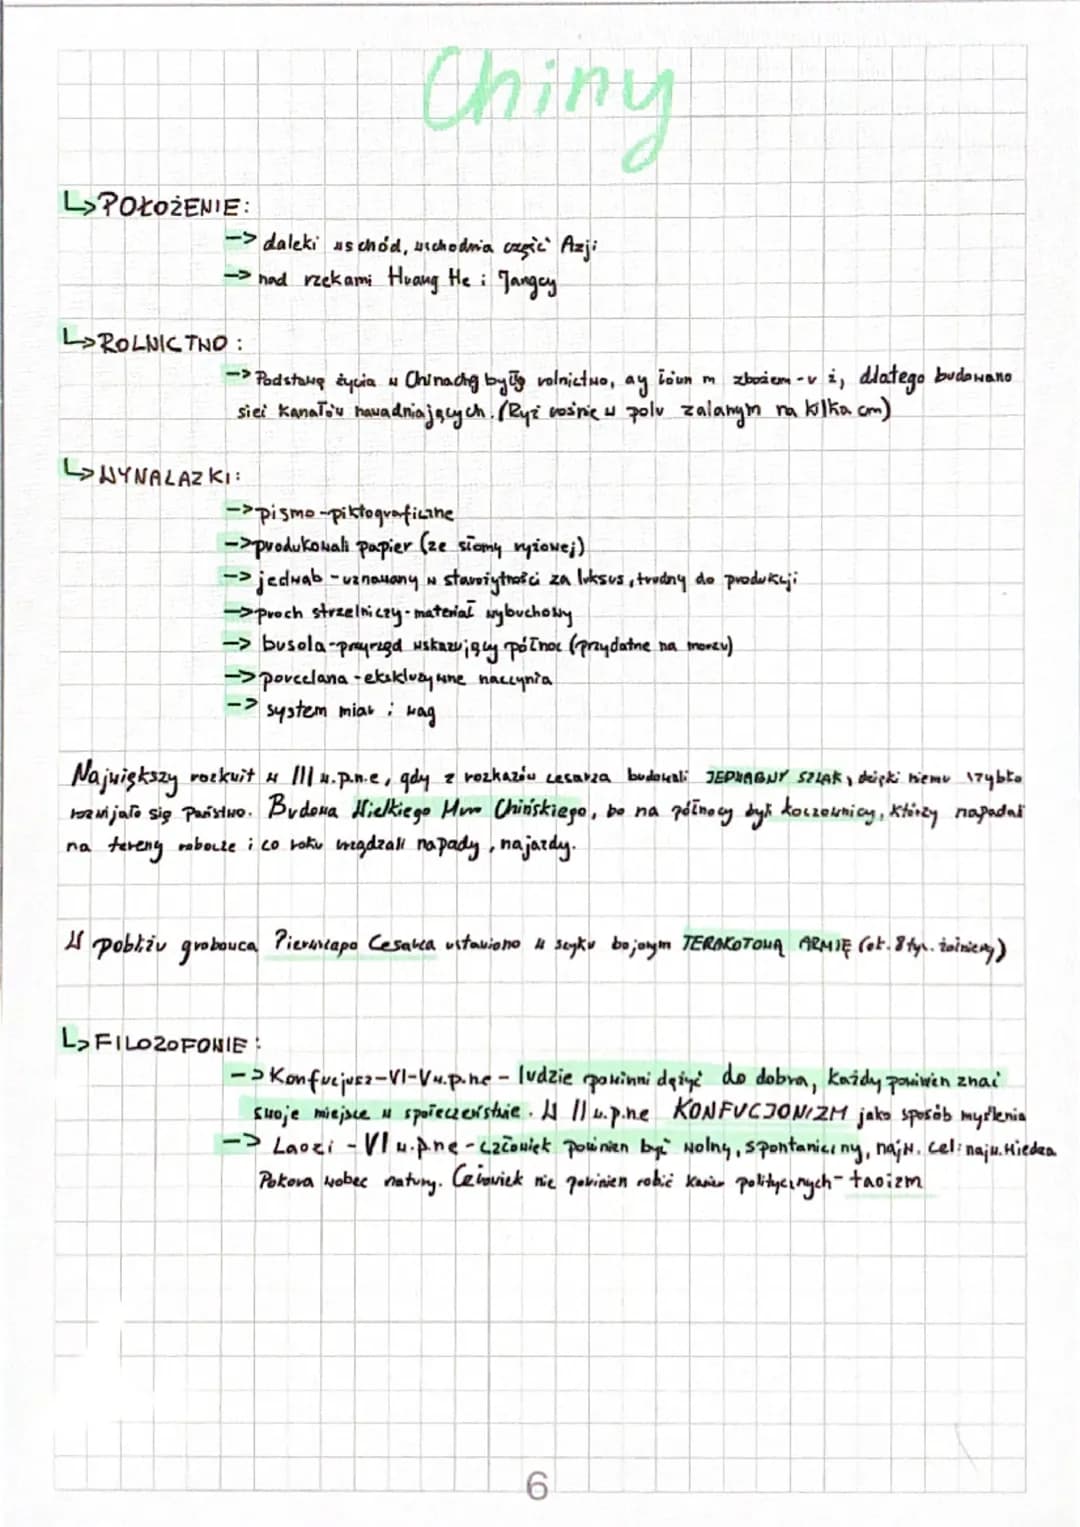 Chiny
↳POŁOŻENIE:
-> daleki wschód, wschodnia część Azji
-> nad rzekami Huang He i Jangcy
↳ROLNICTWO:
-> Podstawą życia w Chinach było rolnictwo, a zbożem - , dlatego budowano
sieci kanałów nawadniających. (Ryż rośnie w polu zalanym na kilka cm)
↳WYNALAZKI:
->pismo-piktograficzne
->produkowali papier (ze słomy ryżowej)
->jedwab-uznawany w starożytności za luksus, trudny do produkcji
->proch strzelniczy-materiał wybuchowy
-> busola-przyrząd wskazujący północ (przydatne na morzu)
->porcelana-ekskluzywne naczynia
-> system miar i wag
Największy rozkwit w III w.p.n.e, gdy z rozkazów cesarza budowali JEDWABNY SZLAK, dzięki niemu szybko
rozwijało się Państwo. Budowa Wielkiego Muru Chińskiego, bo na północy byli koczownicy, którzy napadali
na tereny robocze i co roku urządzali napady, najazdy.
W pobliżu grobowca Pierwszego Cesarza ustawiono w szyku bojowym TERAKOTOWĄ ARMIĘ (ok. 8 tyś. żołnierzy)
↳FILOZOFOWIE:
->Konfucjusz-VI-V w.p.ne - ludzie powinni dążyć do dobra, Każdy powinien znać
swoje miejsce w społeczeństwie. W II w.p.ne KONFUCJONIZM jako sposób myślenia
-> Laozi - VI w.p.ne - człowiek powinien być wolny, spontaniczny, najw. cel: najw. wiedza
Pokora wobec natury. Człowiek nie powinien robić karier politycznych- taoizm
6